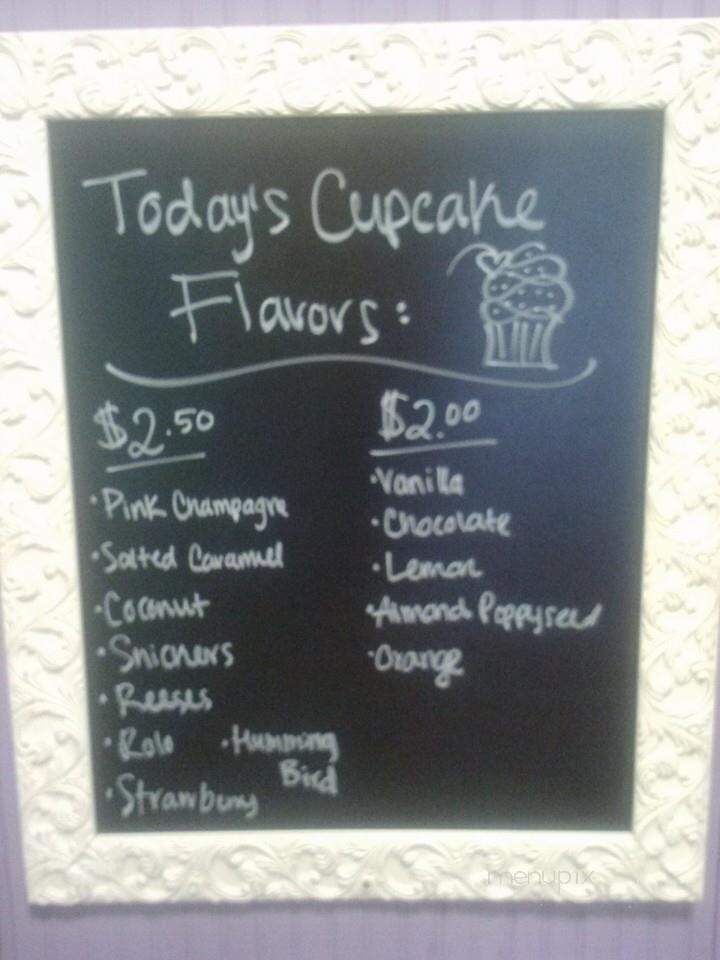 Today's Cupcake
Flavors:
$2.50
• Pink Champagne
• Salted Caramel
• Coconut
• Snickers
• Reeses
• Rolo
• Humming
Bird
• Strawberry
$2.00
• Vanilla
• Chocolate
• Lemon
• Almond Poppyseed
• Orange
menupix